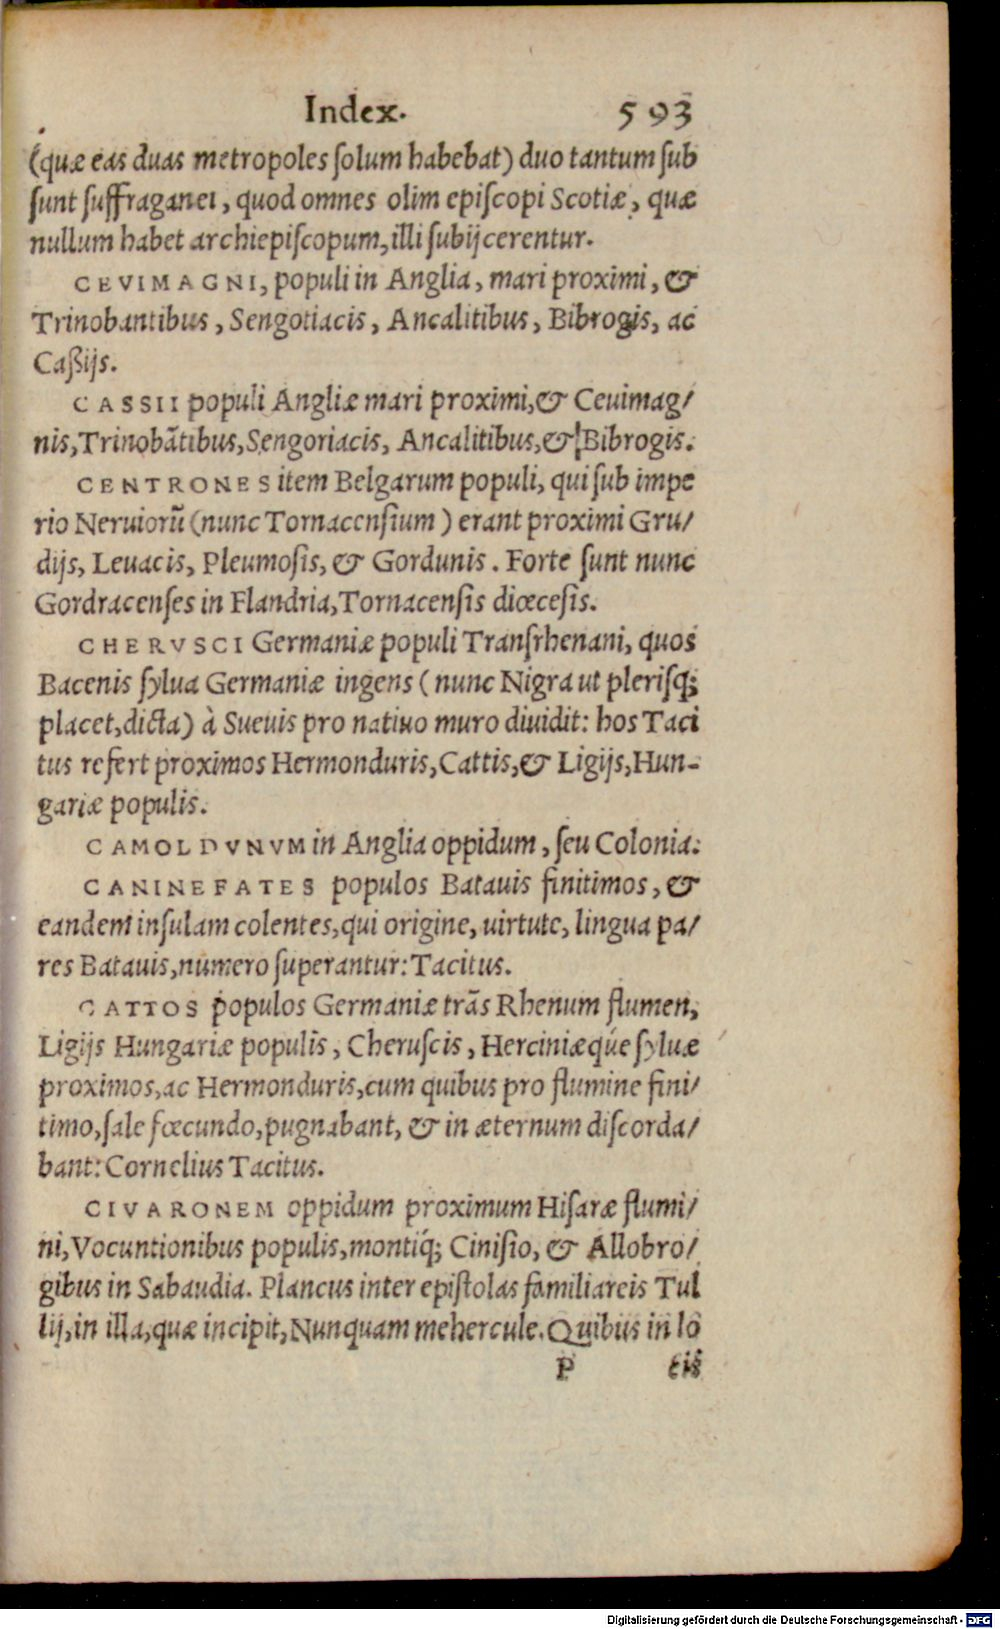 Index. 593
(quæ eas duas metropoles ſolum habebat) duo tantum ſub
ſunt ſuffraganei, quod omnes olim epiſcopi Scotiæ, quæ
nullum habet archiepiſcopum, illi ſubijcerentur.
CEVIMAGNI, populi in Anglia, mari proximi, &
Trinobantibus, Sengotiacis, Ancalitibus, Bibrogis, ac
Caßijs.
CASSII populi Angliæ mari proximi, & Ceuimag/
nis, Trinobãtibus, Sengoriacis, Ancalitibus, & Bibrogis.
CENTRONES item Belgarum populi, qui ſub impe
rio Neruiorũ (nunc Tornacenſium) erant proximi Gru/
dijs, Leuacis, Pleumoſis, & Gordunis. Forte ſunt nunc
Gordracenſes in Flandria, Tornacenſis diœceſis.
CHERVSCI Germaniæ populi Tranſrhenani, quos
Bacenis ſylua Germaniæ ingens (nunc Nigra ut pleriſq;
placet, dicta) à Sueuis pro natiuo muro diuidit: hos Taci
tus refert proximos Hermonduris, Cattis, & Ligijs, Hun-
gariæ populis.
CAMOLDVNVM in Anglia oppidum, ſeu Colonia.
CANINEFATES populos Batauis finitimos, &
eandem inſulam colentes, qui origine, uirtute, lingua pa/
res Batauis, numero ſuperantur: Tacitus.
CATTOS populos Germaniæ trãs Rhenum flumen,
Ligijs Hungariæ populis, Cheruſcis, Herciniæq́ue ſyluæ
proximos, ac Hermonduris, cum quibus pro flumine fini/
timo, ſale fœcundo, pugnabant, & in æternum diſcorda/
bant: Cornelius Tacitus.
CIVARONEM oppidum proximum Hiſaræ flumi/
ni, Vocuntionibus populis, montiq́; Ciniſio, & Allobro/
gibus in Sabaudia. Plancus inter epiſtolas familiareis Tul
lij, in illa, quæ incipit, Nunquam mehercule. Quibus in lo
P cis
Digitalisierung gefördert durch die Deutsche Forschungsgemeinschaft - DFG